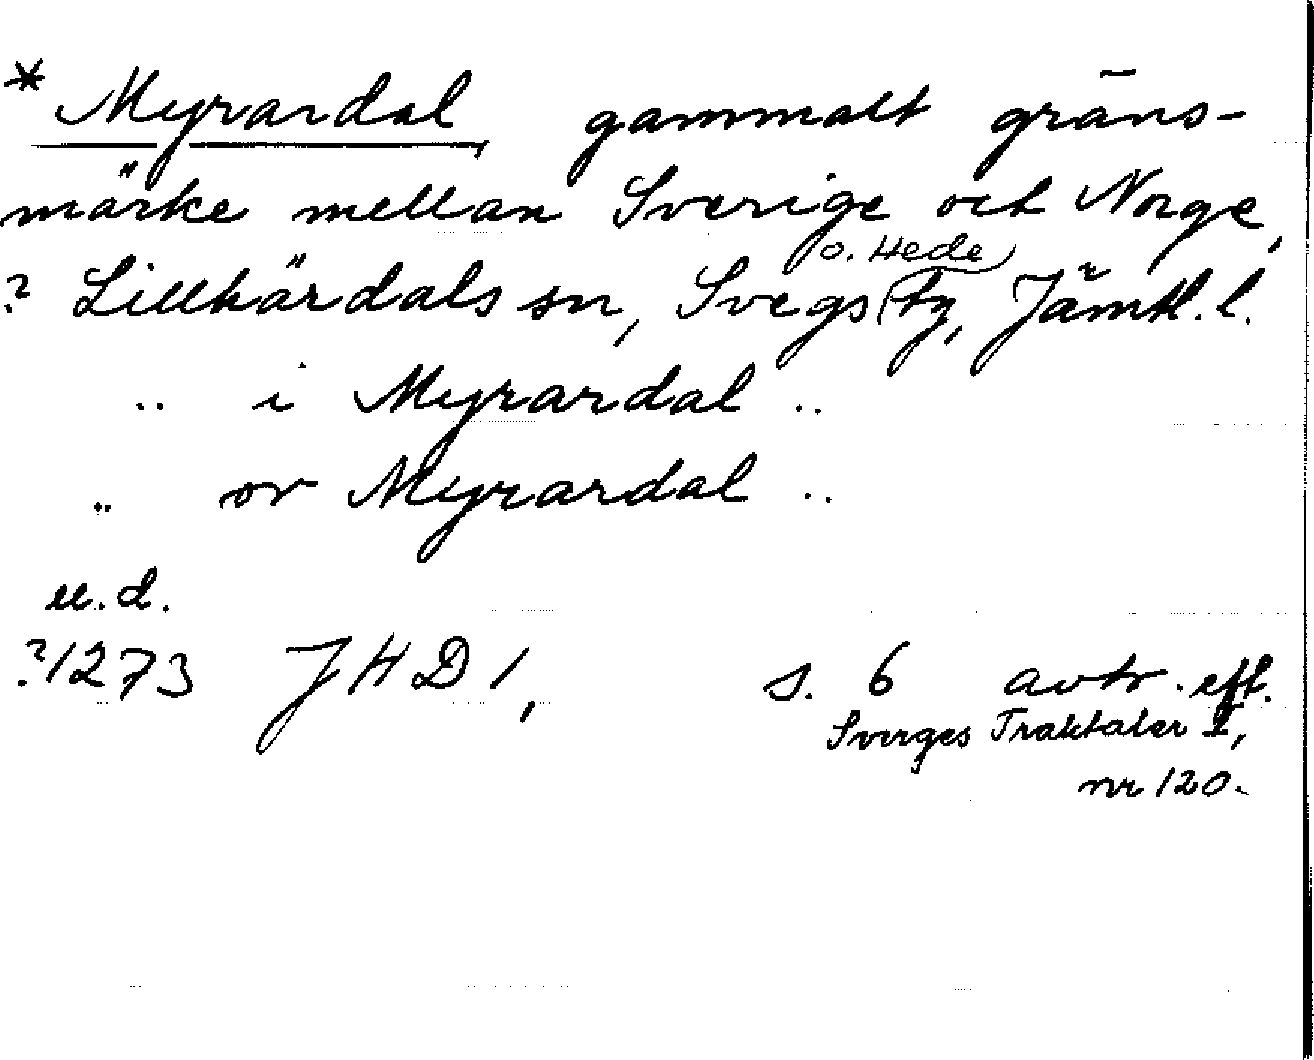 * Myrardal gammalt gräns-
märke mellan Sverige och Norge,
o. Hede
? Lillhärdals sn, Svegs tg, Jämtl. l.
.. i Myrardal ..
.. or Myrardal ..
u.d.
?1273 JHD 1, s. 6 avtr. eft.
Sverges Traktater I,
nr 120.